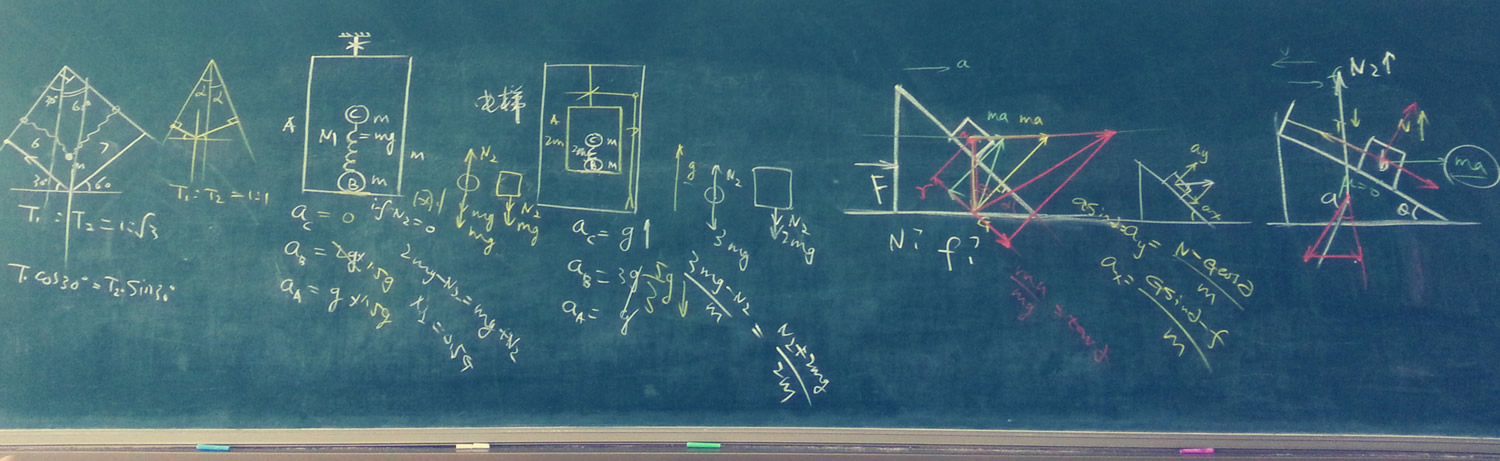 30° 60°
6 7
m
30° 60°
T₁ : T₂ = 1:√3
T₁cos30° = T₂·Sin30°
α α
T₁: T₂ = 1:1
A
C m
N₁ = mg
B m
m
a_C = 0
if N₂ = 0
a_B = 2g × 1.5g
a_A = g × 1.5g
N₂
mg
mg
N₂
mg
2mg - N₂ = mg + N₂
电梯
A
2m
C m
B m
a_C = g ↑
a_B = 3g
a_A =
g
N₂
3mg
N₂
2mg
3mg - N₂
m
=
N₂ + 2mg
2m
a
F
ma ma
G
N? f?
ma
mg
= tanα
a_y
a_x
a_y = N - Gcosα
m
a_x = Gsinα - f
m
v
N₂↑
N
ma
a = 0
θ